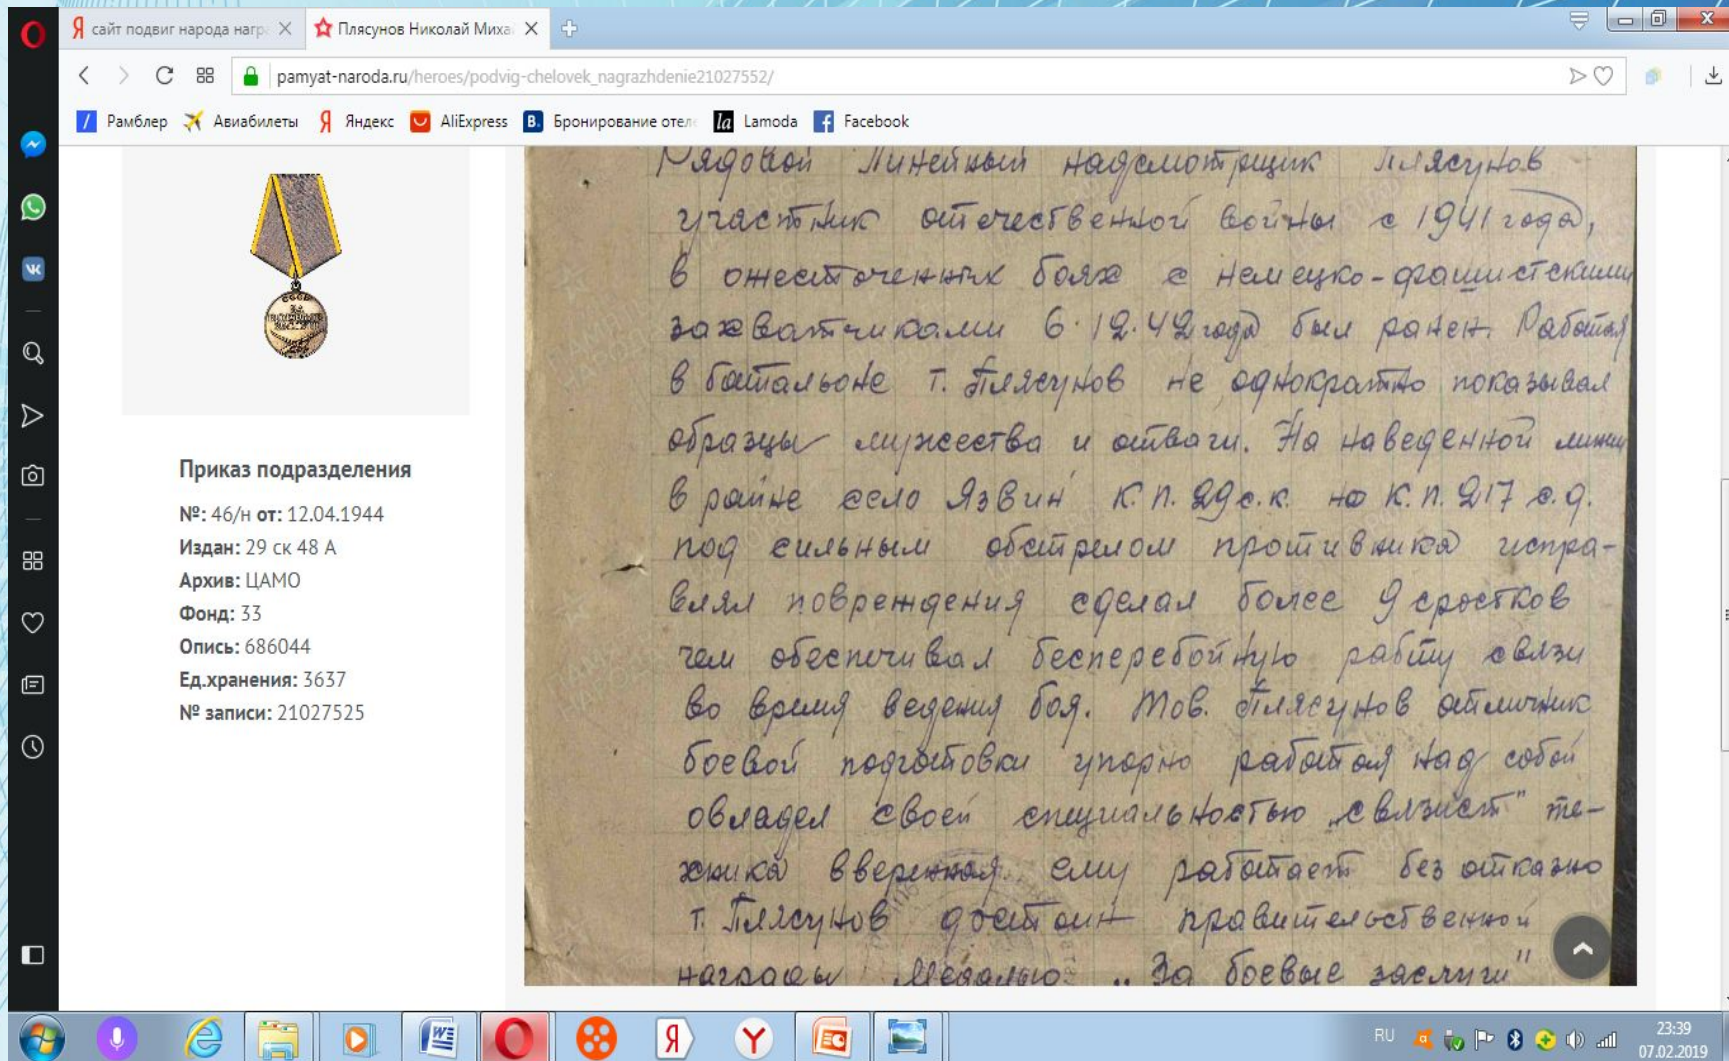 сайт подвиг народа награ
Плясунов Николай Миха
pamyat-naroda.ru/heroes/podvig-chelovek_nagrazhdenie21027552/
Рамблер Авиабилеты Яндекс AliExpress Бронирование отел Lamoda Facebook
Приказ подразделения
№: 46/н от: 12.04.1944
Издан: 29 ск 48 А
Архив: ЦАМО
Фонд: 33
Опись: 686044
Ед.хранения: 3637
№ записи: 21027525
Рядовой Линейный надсмотрщик Плясунов
участник отечественной войны с 1941 года,
в ожесточенных боях с немецко-фашистскими
захватчиками 6.12.42 года был ранен. Работая
в батальоне т. Плясунов не однократно показывал
образцы мужества и отваги. На наведенной линии
в районе село Язвин К.П. 29 с.к. на К.П. 217 с.д.
под сильным обстрелом противника испра-
влял повреждения сделал более 9 сростков
чем обеспечивал бесперебойную работу связи
во время ведения боя. Тов. Плясунов отличник
боевой подготовки упорно работая над собой
овладел своей специальностью „связист" те-
хника вверенная ему работает без отказно
т. Плясунов достоин правительственной
награды Медалью „За боевые заслуги"
RU
23:39
07.02.2019